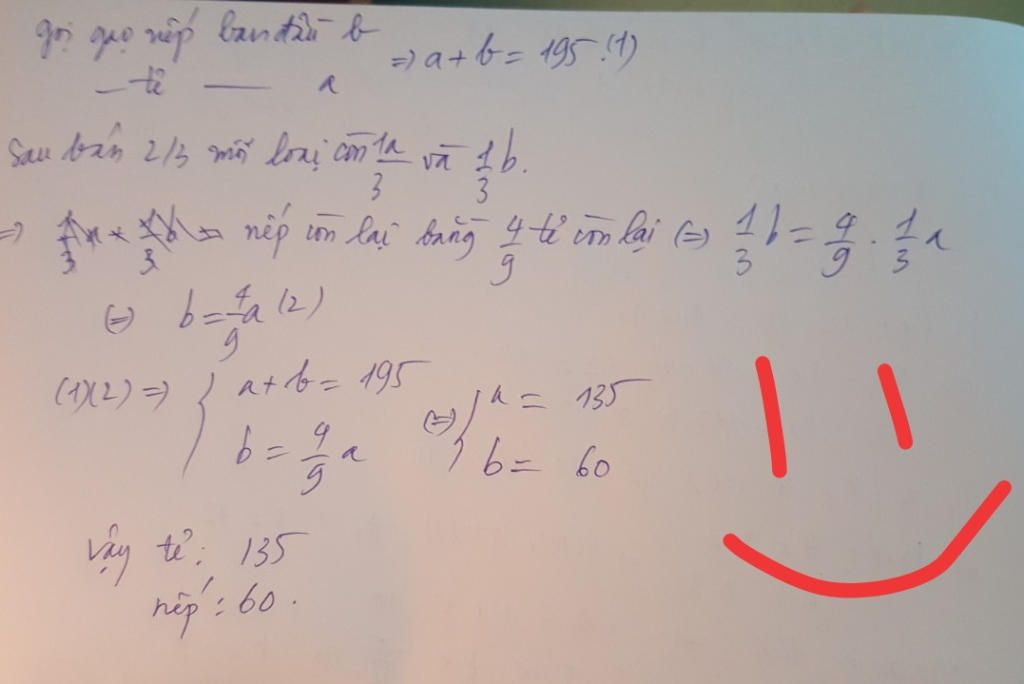 gọi gạo nếp ban đầu b
— tẻ —— a ⇒ a + b = 195 (1)
Sau bán 2/3 mỗi loại còn 1a/3 và 1/3 b.
⇒ nếp còn lại bằng 4/9 tẻ còn lại (=) 1/3 b = 4/9 . 1/3 a
(=) b = 4/9 a (2)
(1)(2) ⇒ { a + b = 195 (=) { a = 135
b = 4/9 a b = 60
Vậy tẻ : 135
nếp : 60 .